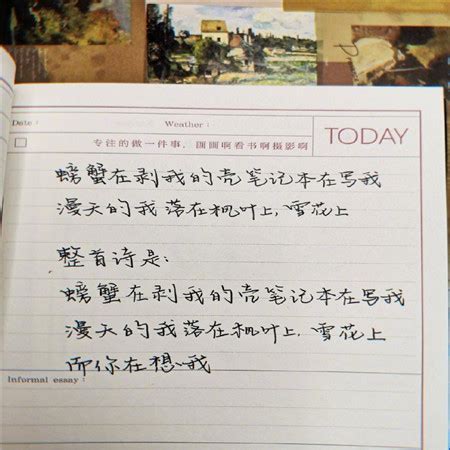 Date：
Weather：
专注的做一件事，画画啊看书啊摄影啊
TODAY
螃蟹在剥我的壳笔记本在写我
漫天的我落在枫叶上，雪花上
整首诗是：
螃蟹在剥我的壳笔记本在写我
漫天的我落在枫叶上，雪花上
而你在想哦
Informal essay：